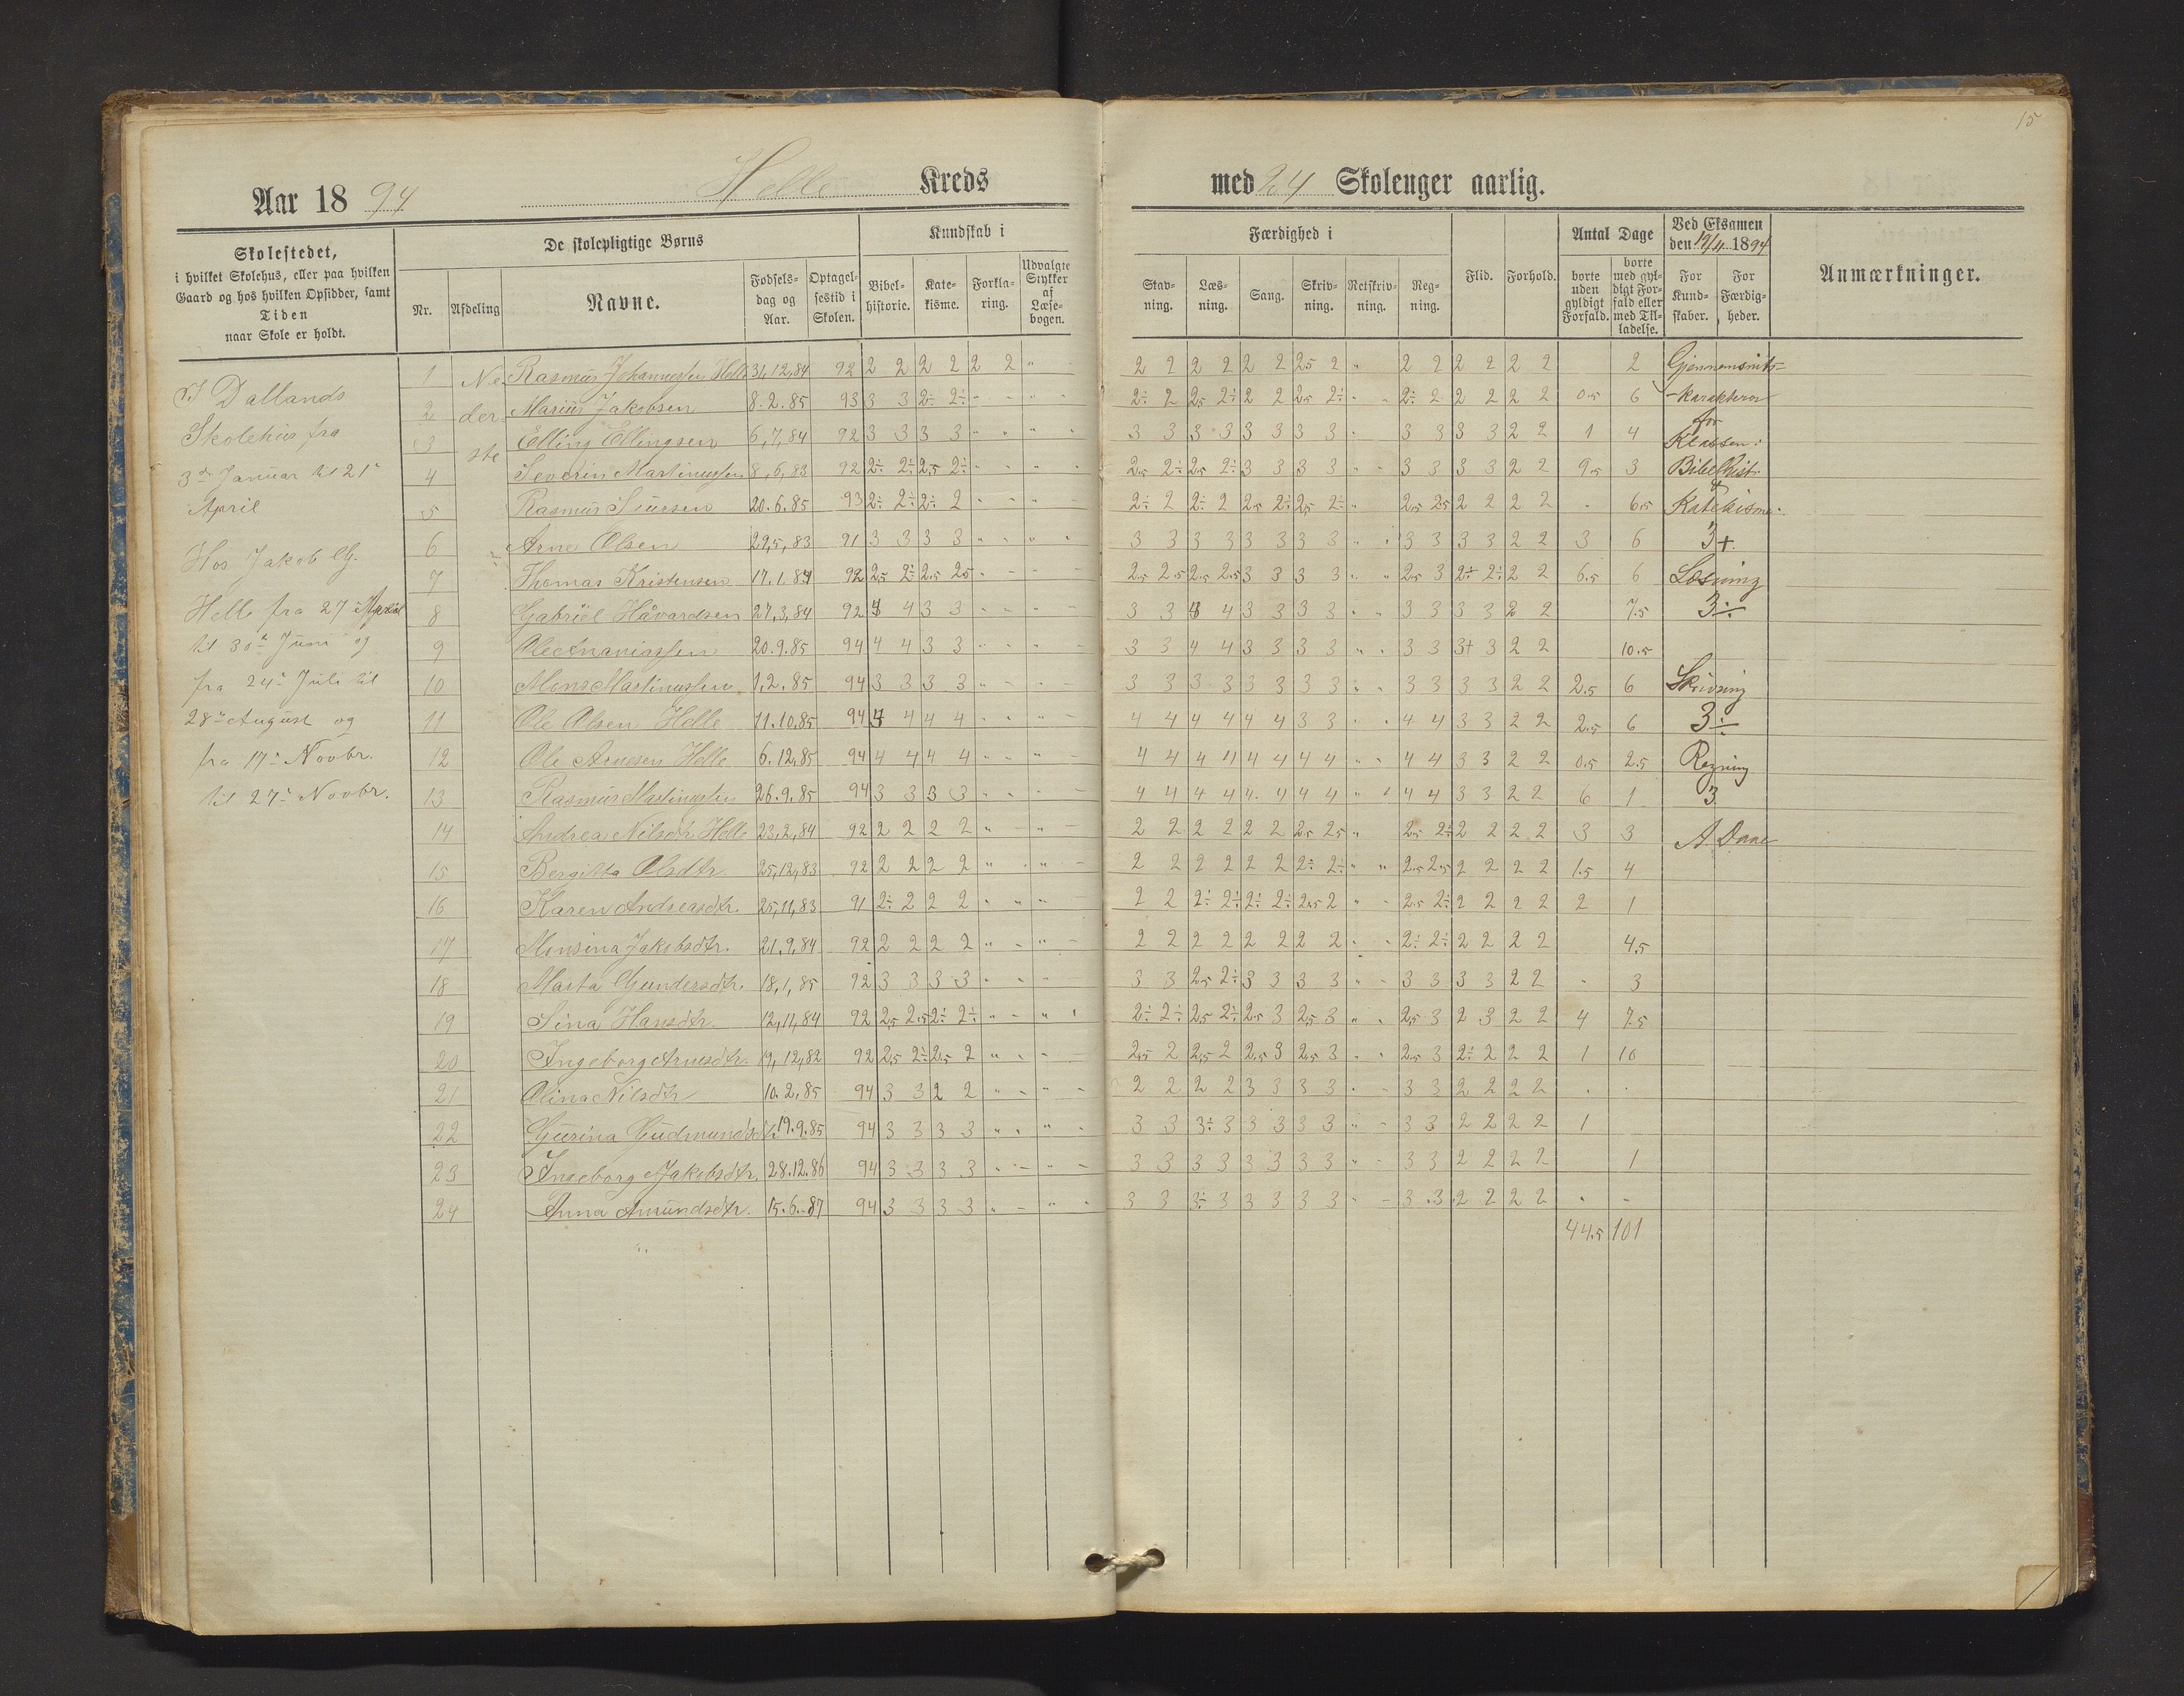 15
Aar 1894
Helle Kreds
med 24 Skoleuger aarlig.
Skolestedet,
i hvilket Skolehus, eller paa hvilken
Gaard og hos hvilken Opsidder, samt
Tiden
naar Skole er holdt.
De skolepligtige Børns
Nr. Afdeling Navne. Fødselsdag og Aar. Optagelsestid i Skolen.
Kundskab i
Bibelhistorie. Katekisme. Forklaring. Udvalgte Stykker af Læsebogen.
Færdighed i
Stavning. Læsning. Sang. Skrivning. Retskrivning. Regning.
Flid. Forhold.
Antal Dage
borte uden gyldigt Forfald. borte med gyldigt Forfald eller med Tilladelse.
Ved Eksamen den 19/4 1894
For Kundskaber. For Færdigheder.
Anmærkninger.
I Dallands
Skolehus fra
3die Januar til 21
April
Hos Jakob G.
Helle fra 27 April
til 30 Juni og
fra 24 Juli til
28 August og
fra 17 Novbr.
til 27 Novbr.
Nederste
1 Rasmus Johannessen Helle 31,12,84 92 2 2 2 2 2 2 " - 2 2 2 2 2 2 2.5 2 " 2 2 2 2 2 2 2
2 Marius Jakobsen 8.2.85 93 3 3 2÷ 2÷ - - " - 2÷ 2 2.5 2÷ 2 2 2.5 2÷ - - 2÷ 2 2 2 2 2 0.5 6
3 Elling Ellingsen 6,7,84 92 3 3 3 3 " " " " 3 3 3 3 3 3 3 3 " 3 3 3 3 2 2 1 4
4 Severin Martinussen 8,6,83 92 2÷ 2÷ 2.5 2÷ - - " - 2.5 2÷ 2.5 2÷ 3 3 3 3 - - 3 3 3 3 2 2 9.5 3
5 Rasmus Siursen 20.6.85 93 2÷ 2÷ 2÷ 2 " - " - 2÷ 2 2÷ 2 2.5 2÷ 2.5 2÷ " 2.5 2.5 2 2 2 2 - 6.5
6 Arne Olsen 29,5,83 91 3 3 3 3 " - " " 3 3 3 3 3 3 3 3 " " 3 3 3 3 2 2 3 6
7 Thomas Kristensen 17.1.84 92 2.5 2÷ 2.5 2.5 " - - - 2.5 2.5 2.5 2.5 3 3 3 3 " " 2.5 3 2÷ 2÷ 2 2 6.5 6
8 Gabriel Håvardsen 27,3,84 92 4 4 3 3 - - - - 3 3 4 4 3 3 3 3 " - 3 3 3 3 2 2 7.5
9 Ole Ananiassen 20.9.85 94 4 4 3 3 " - " - 3 3 4 4 3 3 3 3 " " 3 3 3+ 3 2 2 10.5
10 Mons Martinussen 1,2.85 94 3 3 3 3 " - " - 3 3 3 3 3 3 3 3 " " 3 3 3 3 2 2 2.5 6
11 Ole Olsen Helle 11.10.85 94 4 4 4 4 " - " - 4 4 4 4 4 4 3 3 " " 4 4 3 3 2 2 2.5 6
12 Ole Arnesen Helle 6.12.85 94 4 4 4 4 - - " - 4 4 4 4 4 4 4 4 " " 4 4 3 3 2 2 0.5 2.5
13 Rasmus Martinussen 26.9.85 94 3 3 3 3 " - " - 4 4 4 4 4 4 4 4 " " 4 4 3 3 2 2 6 1
14 Andrea Nilsdtr Helle 23,2,84 92 2 2 2 2 " - " - 2 2 2 2 2 2 2.5 2.5 " 2.5 2÷ 2 2 2 2 3 3
15 Bergitta Olsdtr 25,12,83 92 2 2 2 2 " - " - 2 2 2 2 2 2 2÷ 2÷ " " 2.5 2.5 2 2 2 2 1.5 4
16 Karen Andreasdtr. 25,11,83 91 2÷ 2 2 2 " " " - 2 2 2÷ 2÷ 2÷ 2÷ 2.5 2 " - 2.5 2÷ 2 2 2 2 2 1
17 Monsina Jakobsdtr. 21.9.84 92 2 2 2 2 " - " - 2 2 2 2 2 2 2 2 " - 2÷ 2÷ 2 2 2 2 4.5
18 Marta Gundersdtr. 18,1,85 92 3 3 3 3 " - " - 3 3 2.5 2÷ 3 3 3 3 " - 3 3 3 3 2 2 - 3
19 Sina Hansdtr. 12,11,84 92 2.5 2.5 2÷ 2÷ " - " " 2÷ 2÷ 2.5 2÷ 2.5 3 2.5 3 " " 2.5 3 2 3 2 2 4 7.5
20 Ingeborg Arnesdtr. 19,12,82 92 2.5 2÷ 2.5 2 " - - - 2.5 2 2.5 2 2.5 3 2.5 3 - " 2.5 3 2÷ 2 2 2 1 10
21 Olina Nilsdtr 10.2.85 94 3 3 2 2 " - " - 2 2 2 2 3 3 3 3 " - 3 3 2 2 2 2 . .
22 Gurina Gudmundsdtr. 19.9.85 94 3 3 3 3 " " " - 3 3 3÷ 3 3 3 3 3 " - 3 3 2 2 2 2 1
23 Ingeborg Jakobsdtr. 28.12.86 94 3 3 3 3 " - " - 3 3 3 3 3 3 3 3 " - 3 3 2 2 2 2 1
24 Anna Amundsdtr. 15.6.87 94 3 3 3 3 " - " - 3 3 3÷ 3 3 3 3 3 - - 3 3 2 2 2 2 . -
44.5 101
Gjennemsnits-
-karakterer
for
Klassen:
Bibelhist.
&
Katekisme:
3+.
Læsning
3÷
Skrivning
3÷
Regning
3.
A Daae